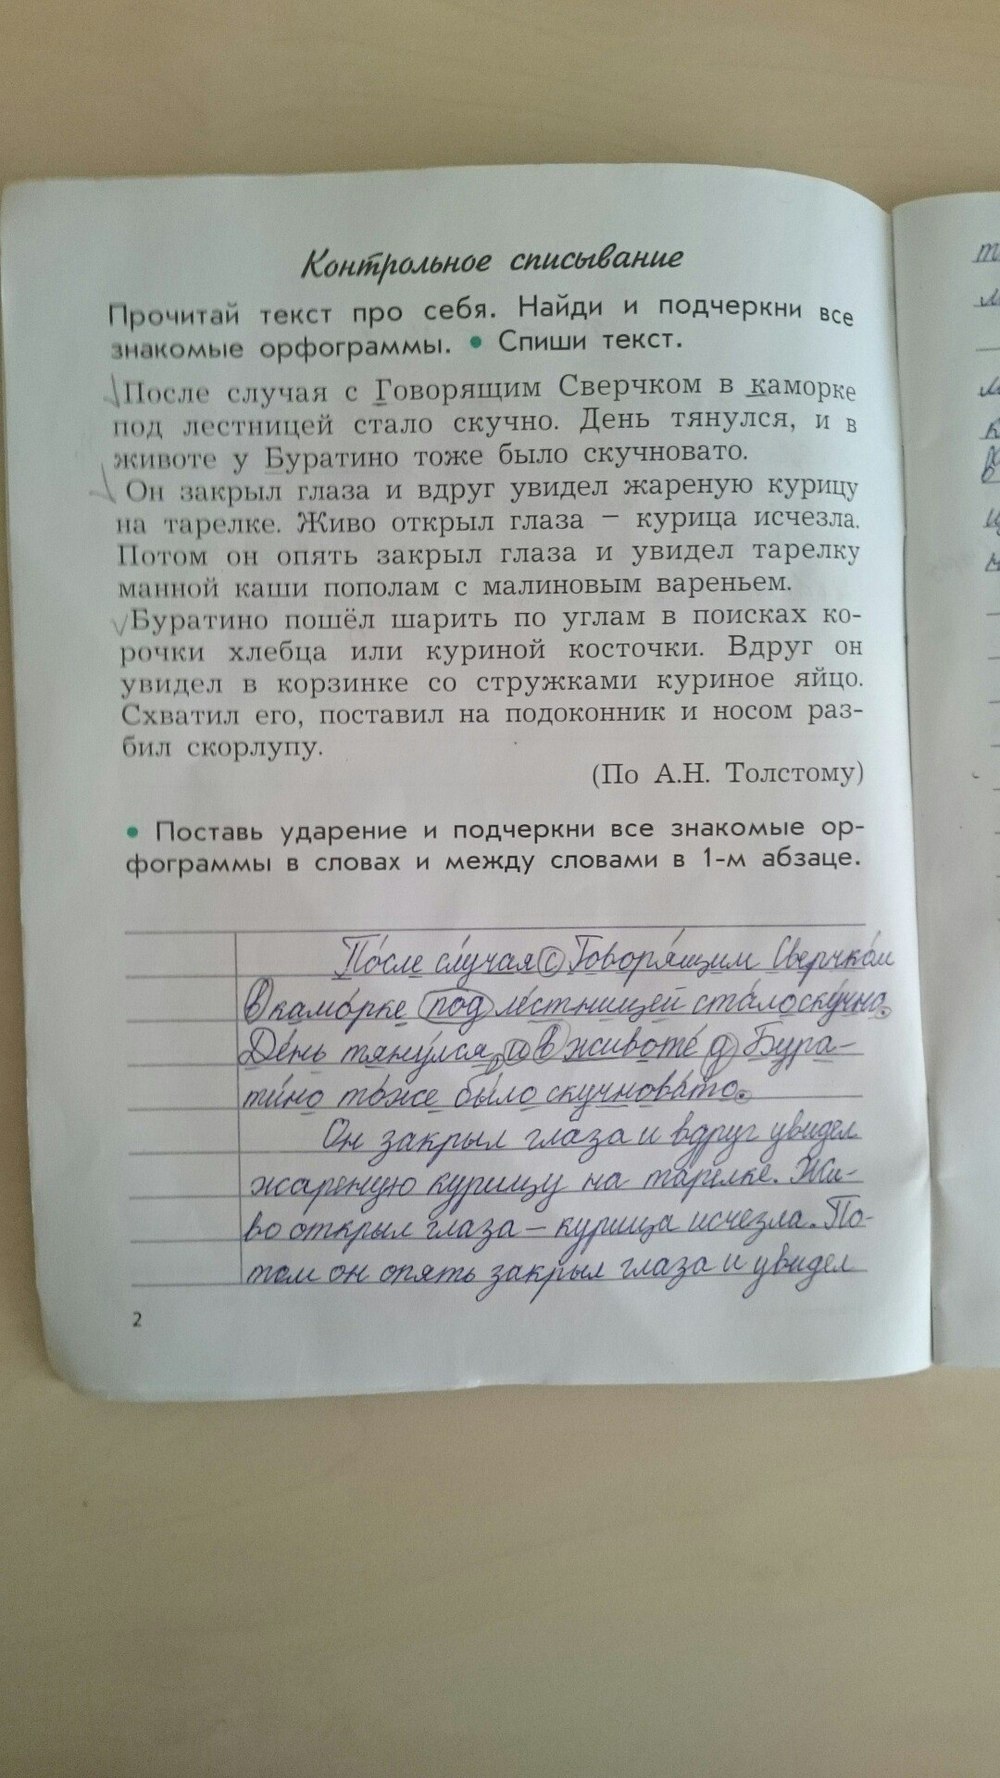 Контрольное списывание
Прочитай текст про себя. Найди и подчеркни все
знакомые орфограммы. • Спиши текст.
После случая с Говорящим Сверчком в каморке
под лестницей стало скучно. День тянулся, и в
животе у Буратино тоже было скучновато.
Он закрыл глаза и вдруг увидел жареную курицу
на тарелке. Живо открыл глаза – курица исчезла.
Потом он опять закрыл глаза и увидел тарелку
манной каши пополам с малиновым вареньем.
Буратино пошёл шарить по углам в поисках ко-
рочки хлебца или куриной косточки. Вдруг он
увидел в корзинке со стружками куриное яйцо.
Схватил его, поставил на подоконник и носом раз-
бил скорлупу.
(По А.Н. Толстому)
• Поставь ударение и подчеркни все знакомые ор-
фограммы в словах и между словами в 1-м абзаце.
По́сле слу́чая с Говоря́щим Сверчко́м
в камо́рке под ле́стницей ста́ло ску́чно.
Де́нь тяну́лся, и в животе́ у Бура-
ти́но то́же бы́ло скучнова́то.
Он закрыл глаза и вдруг увидел
жареную курицу на тарелке. Жи-
во открыл глаза – курица исчезла. По-
том он опять закрыл глаза и увидел
2